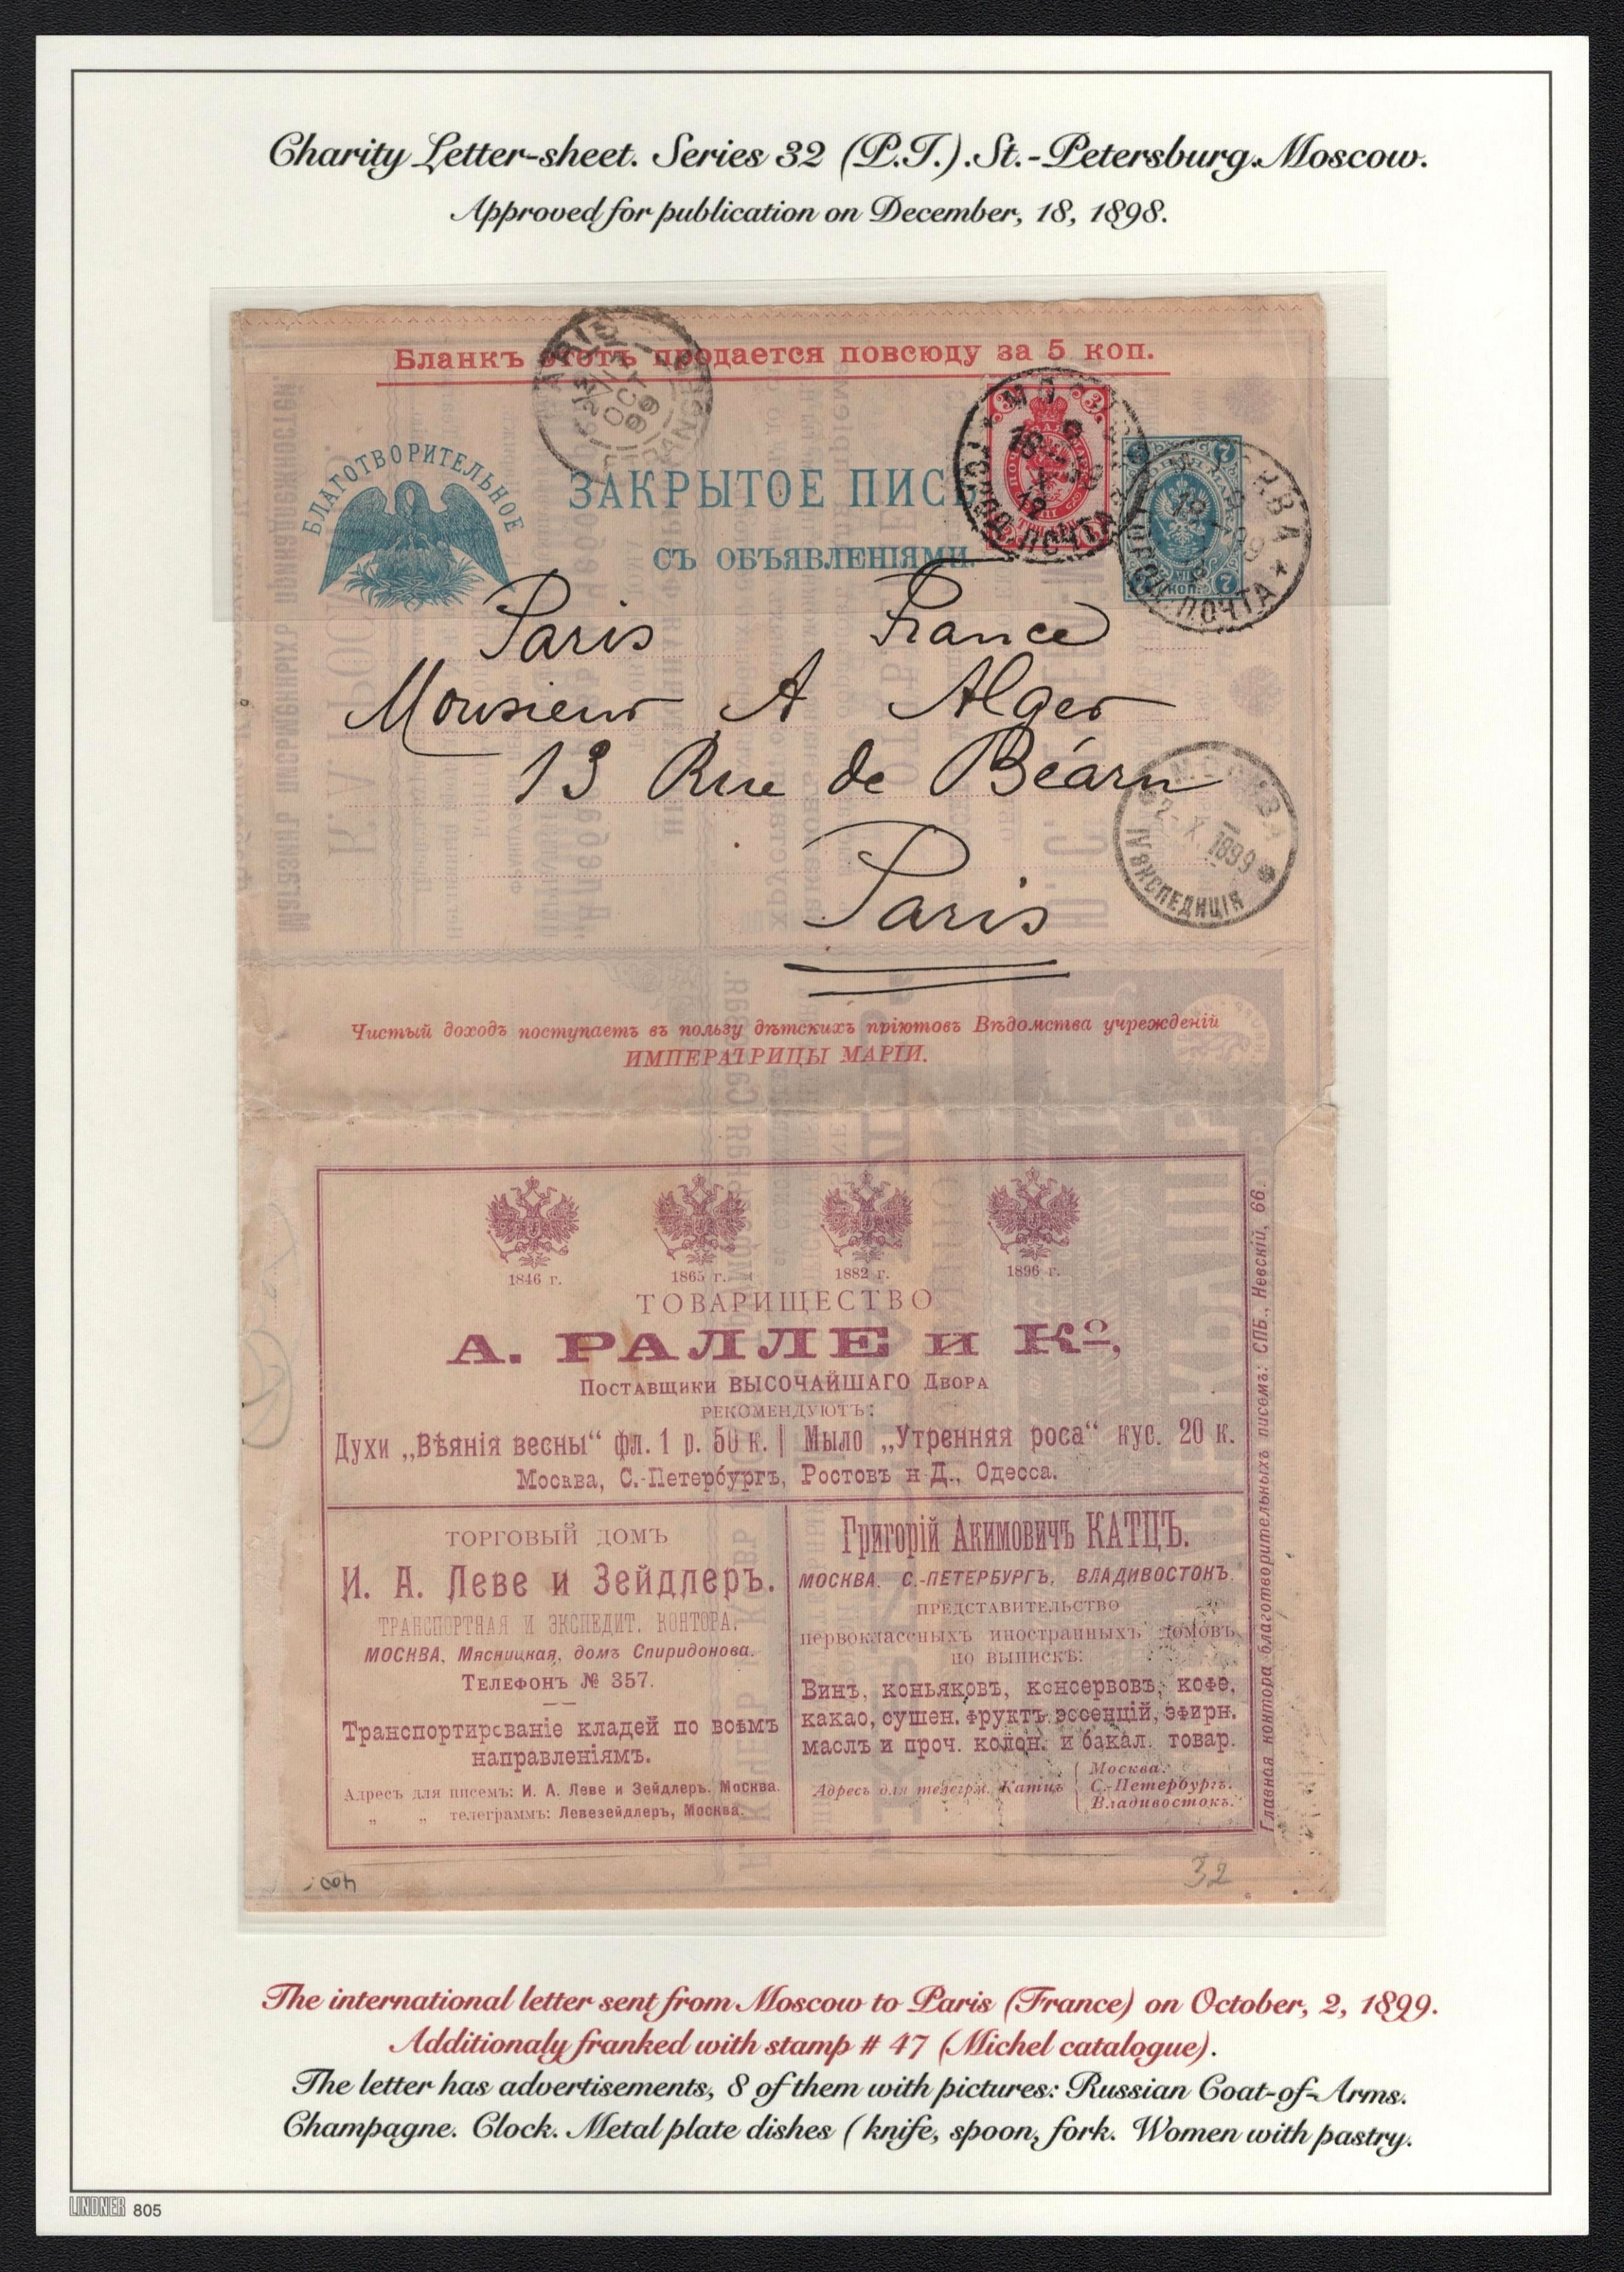 Charity Letter-sheet. Series 32 (P.T.). St.-Petersburg. Moscow.
Approved for publication on December, 18, 1898.
Бланкъ этотъ продается повсюду за 5 коп.
БЛАГОТВОРИТЕЛЬНОЕ
ЗАКРЫТОЕ ПИСЬ
СЪ ОБЪЯВЛЕНІЯМИ.
PARIS
OCT
99
ПОЧТА
7 КОП. 7
ПОЧТА
Paris France
Monsieur A Alger
13 Rue de Béarn
Paris
МОСКВА
2-X 1899
IV ЭКСПЕДИЦІЯ
Чистый доходъ поступаетъ въ пользу дѣтскихъ пріютовъ Вѣдомства учрежденій
ИМПЕРАТРИЦЫ МАРІИ.
1846 г. 1865 г. 1882 г. 1896 г.
ТОВАРИЩЕСТВО
А. РАЛЛЕ и Кº,
Поставщики ВЫСОЧАЙШАГО Двора
РЕКОМЕНДУЮТЪ:
Духи „Вѣянія весны“ фл. 1 р. 50 к. | Мыло „Утренняя роса“ кус. 20 к.
Москва, С.-Петербургъ, Ростовъ н-Д., Одесса.
ТОРГОВЫЙ ДОМЪ
И. А. Леве и Зейдлеръ.
ТРАНСПОРТНАЯ И ЭКСПЕДИТ. КОНТОРА.
МОСКВА, Мясницкая, домъ Спиридонова.
Телефонъ № 357.
Транспортированіе кладей по всѣмъ
направленіямъ.
Адресъ для писемъ: И. А. Леве и Зейдлеръ. Москва.
„ „ телеграммъ: Левезейдлеръ, Москва.
Григорій Акимовичъ КАТЦЪ.
МОСКВА. С.-ПЕТЕРБУРГЪ, ВЛАДИВОСТОКЪ.
ПРЕДСТАВИТЕЛЬСТВО
первоклассныхъ иностранныхъ домовъ
по выпискѣ:
Винъ, коньяковъ, консервовъ, кофе,
какао, сушен. фруктъ, эссенцій, эфирн.
маслъ и проч. колон. и бакал. товар.
Адресъ для телегрм. Катцъ { Москва.
С.-Петербургъ.
Владивостокъ.
Главная контора благотворительныхъ писемъ: СПБ., Невскій, 66.
32
The international letter sent from Moscow to Paris (France) on October, 2, 1899.
Additionaly franked with stamp # 47 (Michel catalogue).
The letter has advertisements, 8 of them with pictures: Russian Coat-of-Arms.
Champagne. Clock. Metal plate dishes ( knife, spoon, fork. Women with pastry.
LINDNER 805